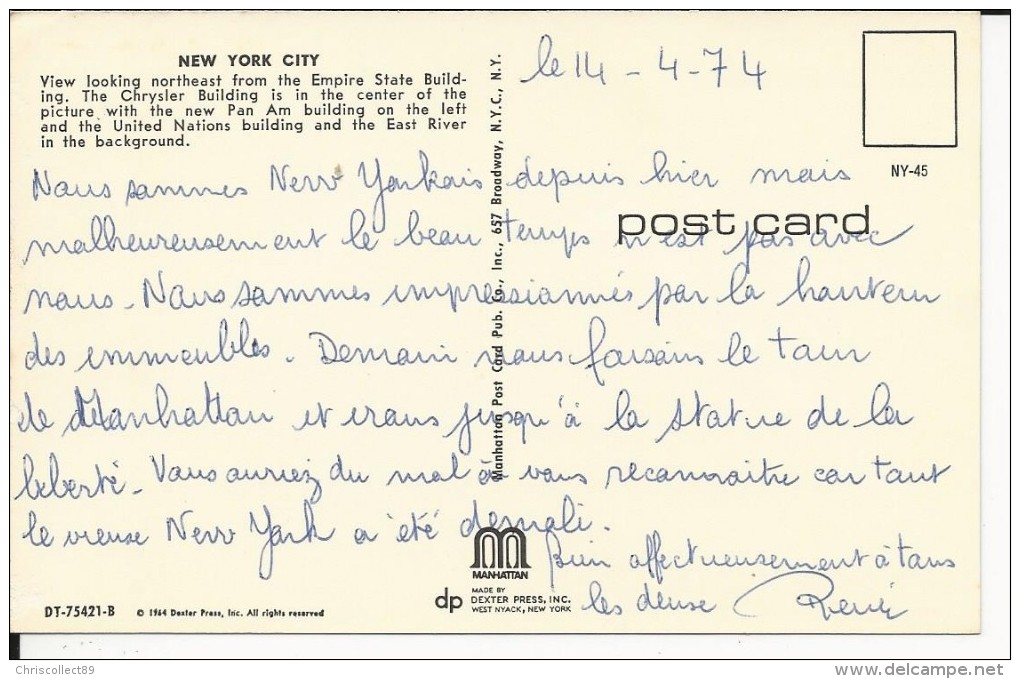 NEW YORK CITY
View looking northeast from the Empire State Build-
ing. The Chrysler Building is in the center of the
picture with the new Pan Am building on the left
and the United Nations building and the East River
in the background.
le 14 - 4 - 74
NY-45
post card
Manhattan Post Card Pub. Co., Inc., 657 Broadway, N.Y.C., N.Y.
Nous sommes New Yorkais depuis hier mais
malheureusement le beau temps n'est pas avec
nous. Nous sommes impressionnés par la hauteur
des immeubles. Demain nous faisons le tour
de Manhattan et irons jusqu'à la statue de la
liberté. Vous auriez du mal à vous reconnaitre car tout
le vieux New York a été demoli.
Bien affectueusement à tous
les deux René
MANHATTAN
dp MADE BY
DEXTER PRESS, INC.
WEST NYACK, NEW YORK
DT-75421-B © 1964 Dexter Press, Inc. All rights reserved
Chriscollect89
www.delcampe.net